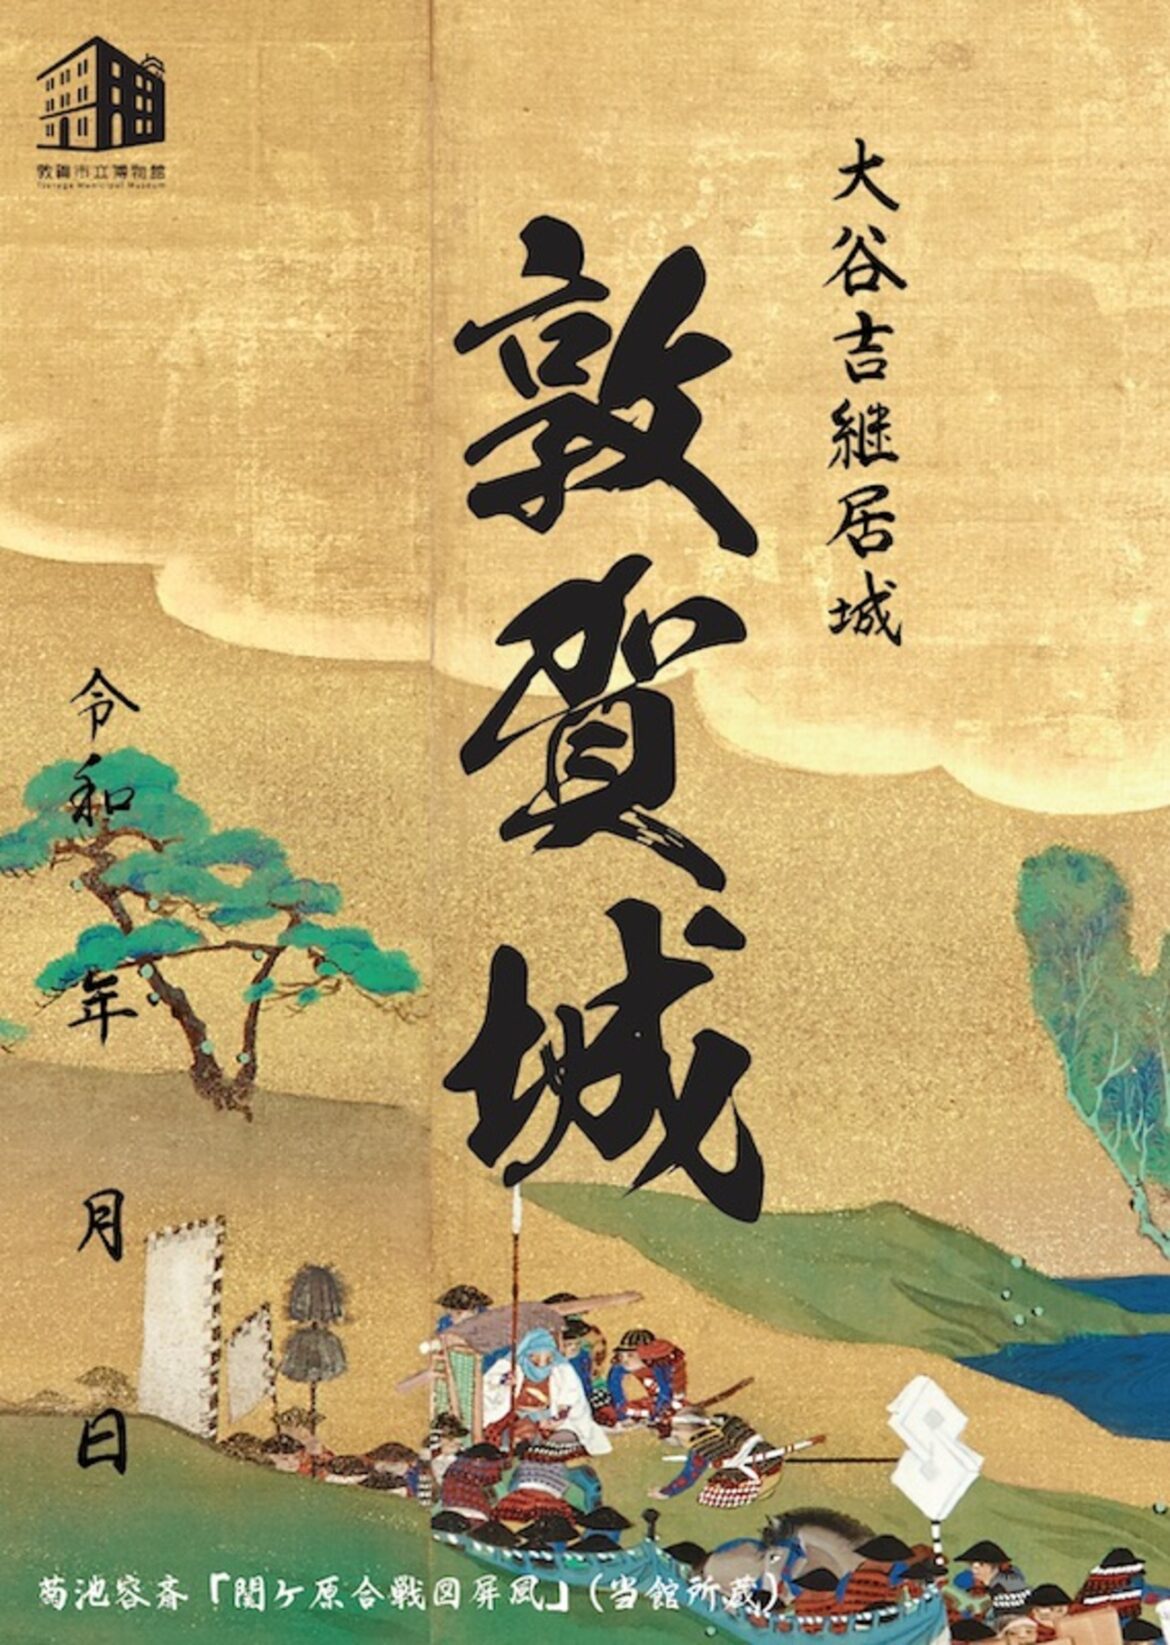 敦賀市立博物館
Tsuruga Municipal Museum
大谷吉継居城
敦賀城
令和 年 月 日
菊池容斎「関ケ原合戦図屏風」(当館所蔵)